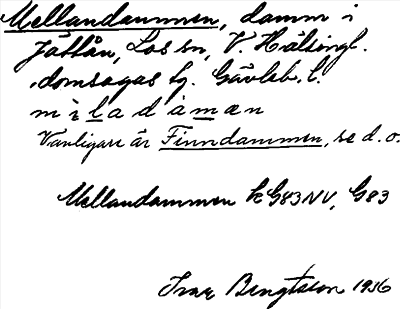 Mellandammen, damm i
Jättån, Los sn, V. Hälsingl.
domsagas tg. Gävleb. l.
mìladàmən
Vanligare är Finndammen, se d. o.
Mellandammen k G83NV, G83
Ivar Bengtsson 1936